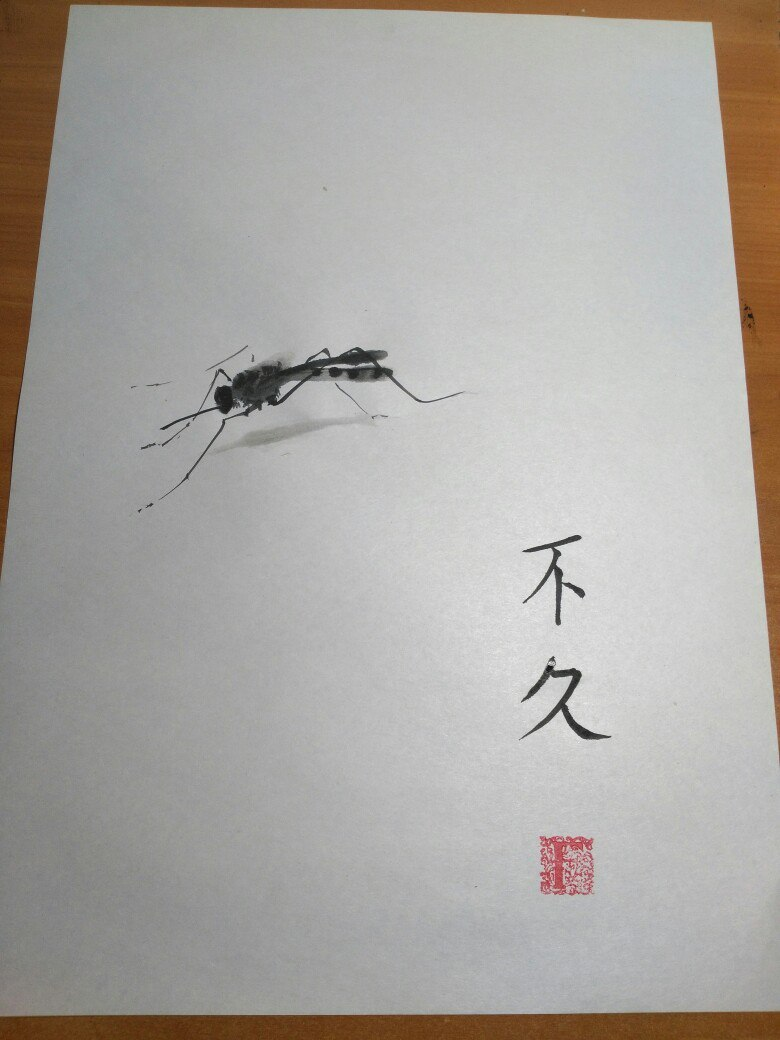 不久
F